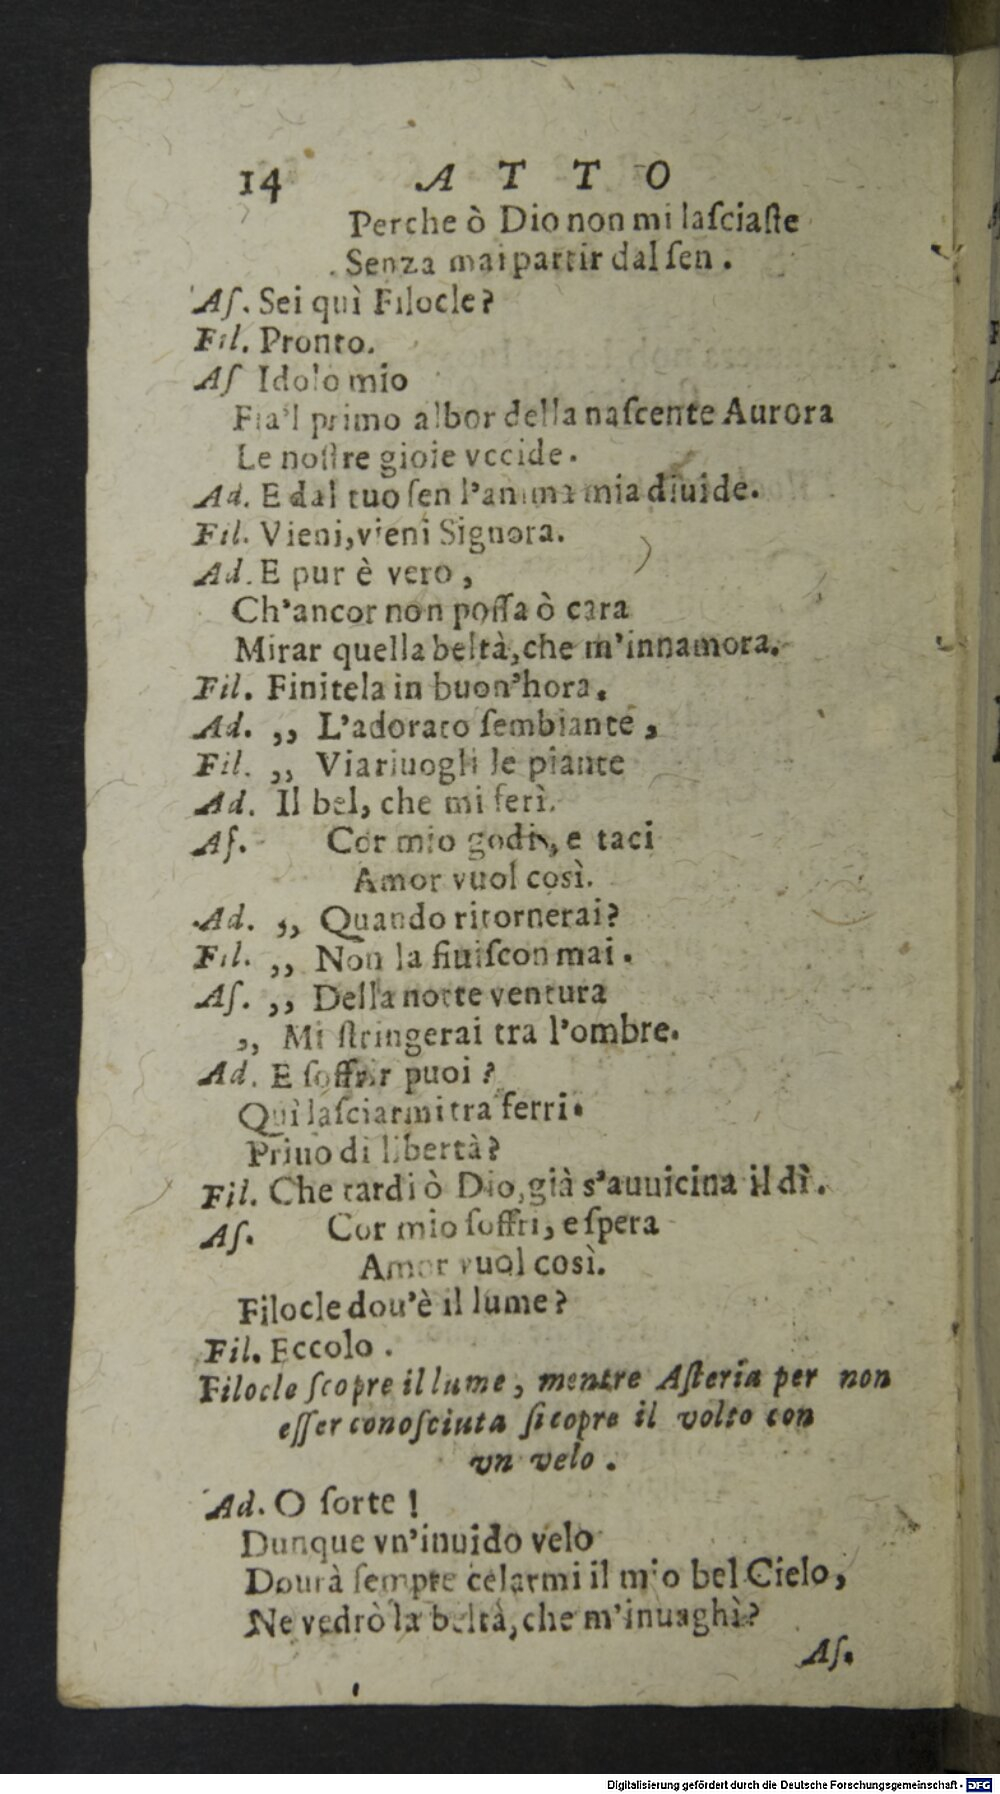 14 A T T O
Perche ò Dio non mi laſciaſte
Senza mai partir dal ſen.
Aſ. Sei quì Filocle?
Fil. Pronto.
Aſ Idolo mio
Fia'l primo albor della naſcente Aurora
Le noſtre gioie vccide.
Ad. E dal tuo ſen l'anima mia diuide.
Fil. Vieni, vieni Signora.
Ad. E pur è vero,
Ch'ancor non poſſa ò cara
Mirar quella beltà, che m'innamora.
Fil. Finitela in buon'hora.
Ad. ,, L'adorato ſembiante,
Fil. ,, Via riuogli le piante
Ad. Il bel, che mi ferì.
Aſ. Cor mio godi, e taci
Amor vuol così.
Ad. ,, Quando ritornerai?
Fil. ,, Non la finiſcon mai.
Aſ. ,, Della notte ventura
,, Mi ſtringerai tra l'ombre.
Ad. E ſoffrir puoi?
Quì laſciarmi tra ferri.
Priuo di libertà?
Fil. Che tardi ò Dio, già s'auuicina il dì.
Aſ. Cor mio ſoffri, e ſpera
Amor vuol così.
Filocle dou'è il lume?
Fil. Eccolo.
Filocle ſcopre il lume, mentre Aſteria per non
eſſer conoſciuta ſi copre il volto con
vn velo.
Ad. O ſorte!
Dunque vn'inuido velo
Dourà ſempre celarmi il mio bel Cielo,
Ne vedrò la beltà, che m'inuaghì?
Aſ.
Digitalisierung gefördert durch die Deutsche Forschungsgemeinschaft - DFG